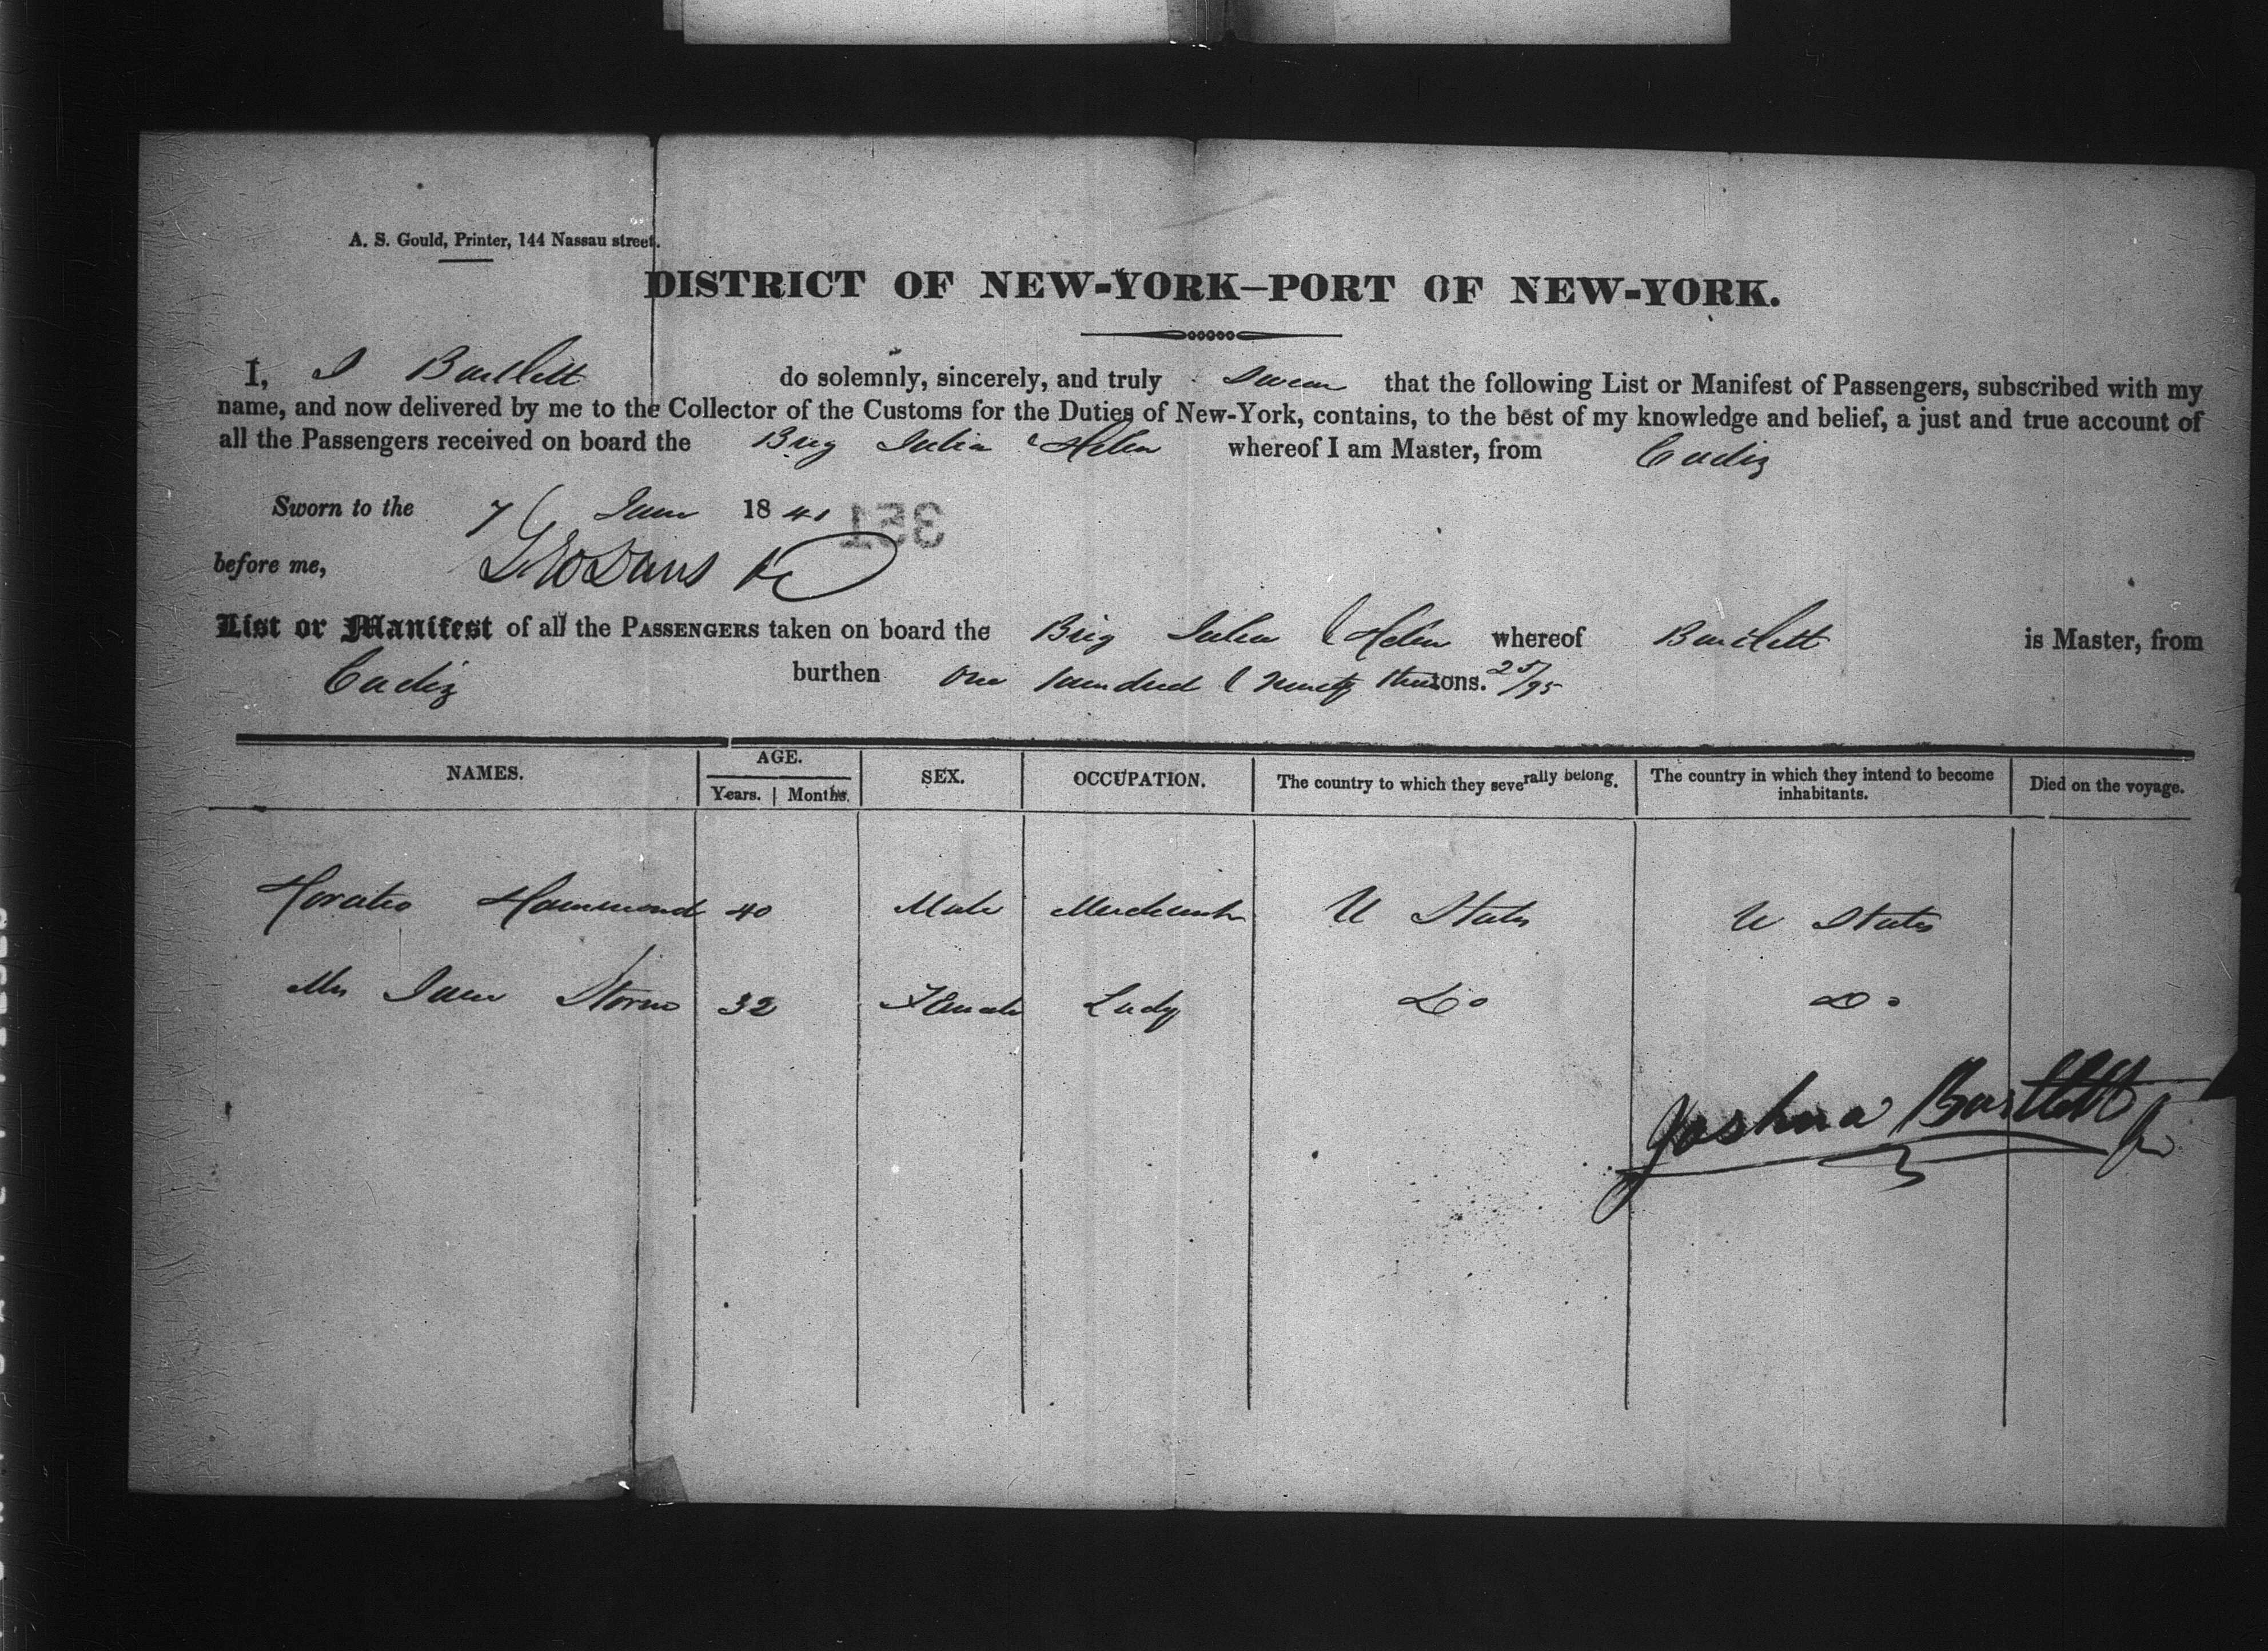 A. S. Gould, Printer, 144 Nassau street.
DISTRICT OF NEW-YORK—PORT OF NEW-YORK.
I, J Bartlett do solemnly, sincerely, and truly Swear that the following List or Manifest of Passengers, subscribed with my
name, and now delivered by me to the Collector of the Customs for the Duties of New-York, contains, to the best of my knowledge and belief, a just and true account of
all the Passengers received on board the Brig Julia & Helen whereof I am Master, from Cadiz
Sworn to the 7 June 1841 351
before me,
List or Manifest of all the PASSENGERS taken on board the Brig Julia & Helen whereof Bartlett is Master, from
Cadiz burthen One hundred & Ninety three tons. 25/95
NAMES. AGE. SEX. OCCUPATION. The country to which they severally belong. The country in which they intend to become inhabitants. Died on the voyage.
Years. Months.
Horatio Hammond 40 Male Merchant U States U States
Mrs Jane Storm 32 Female Lady Do Do
Joshua Bartlett Jr